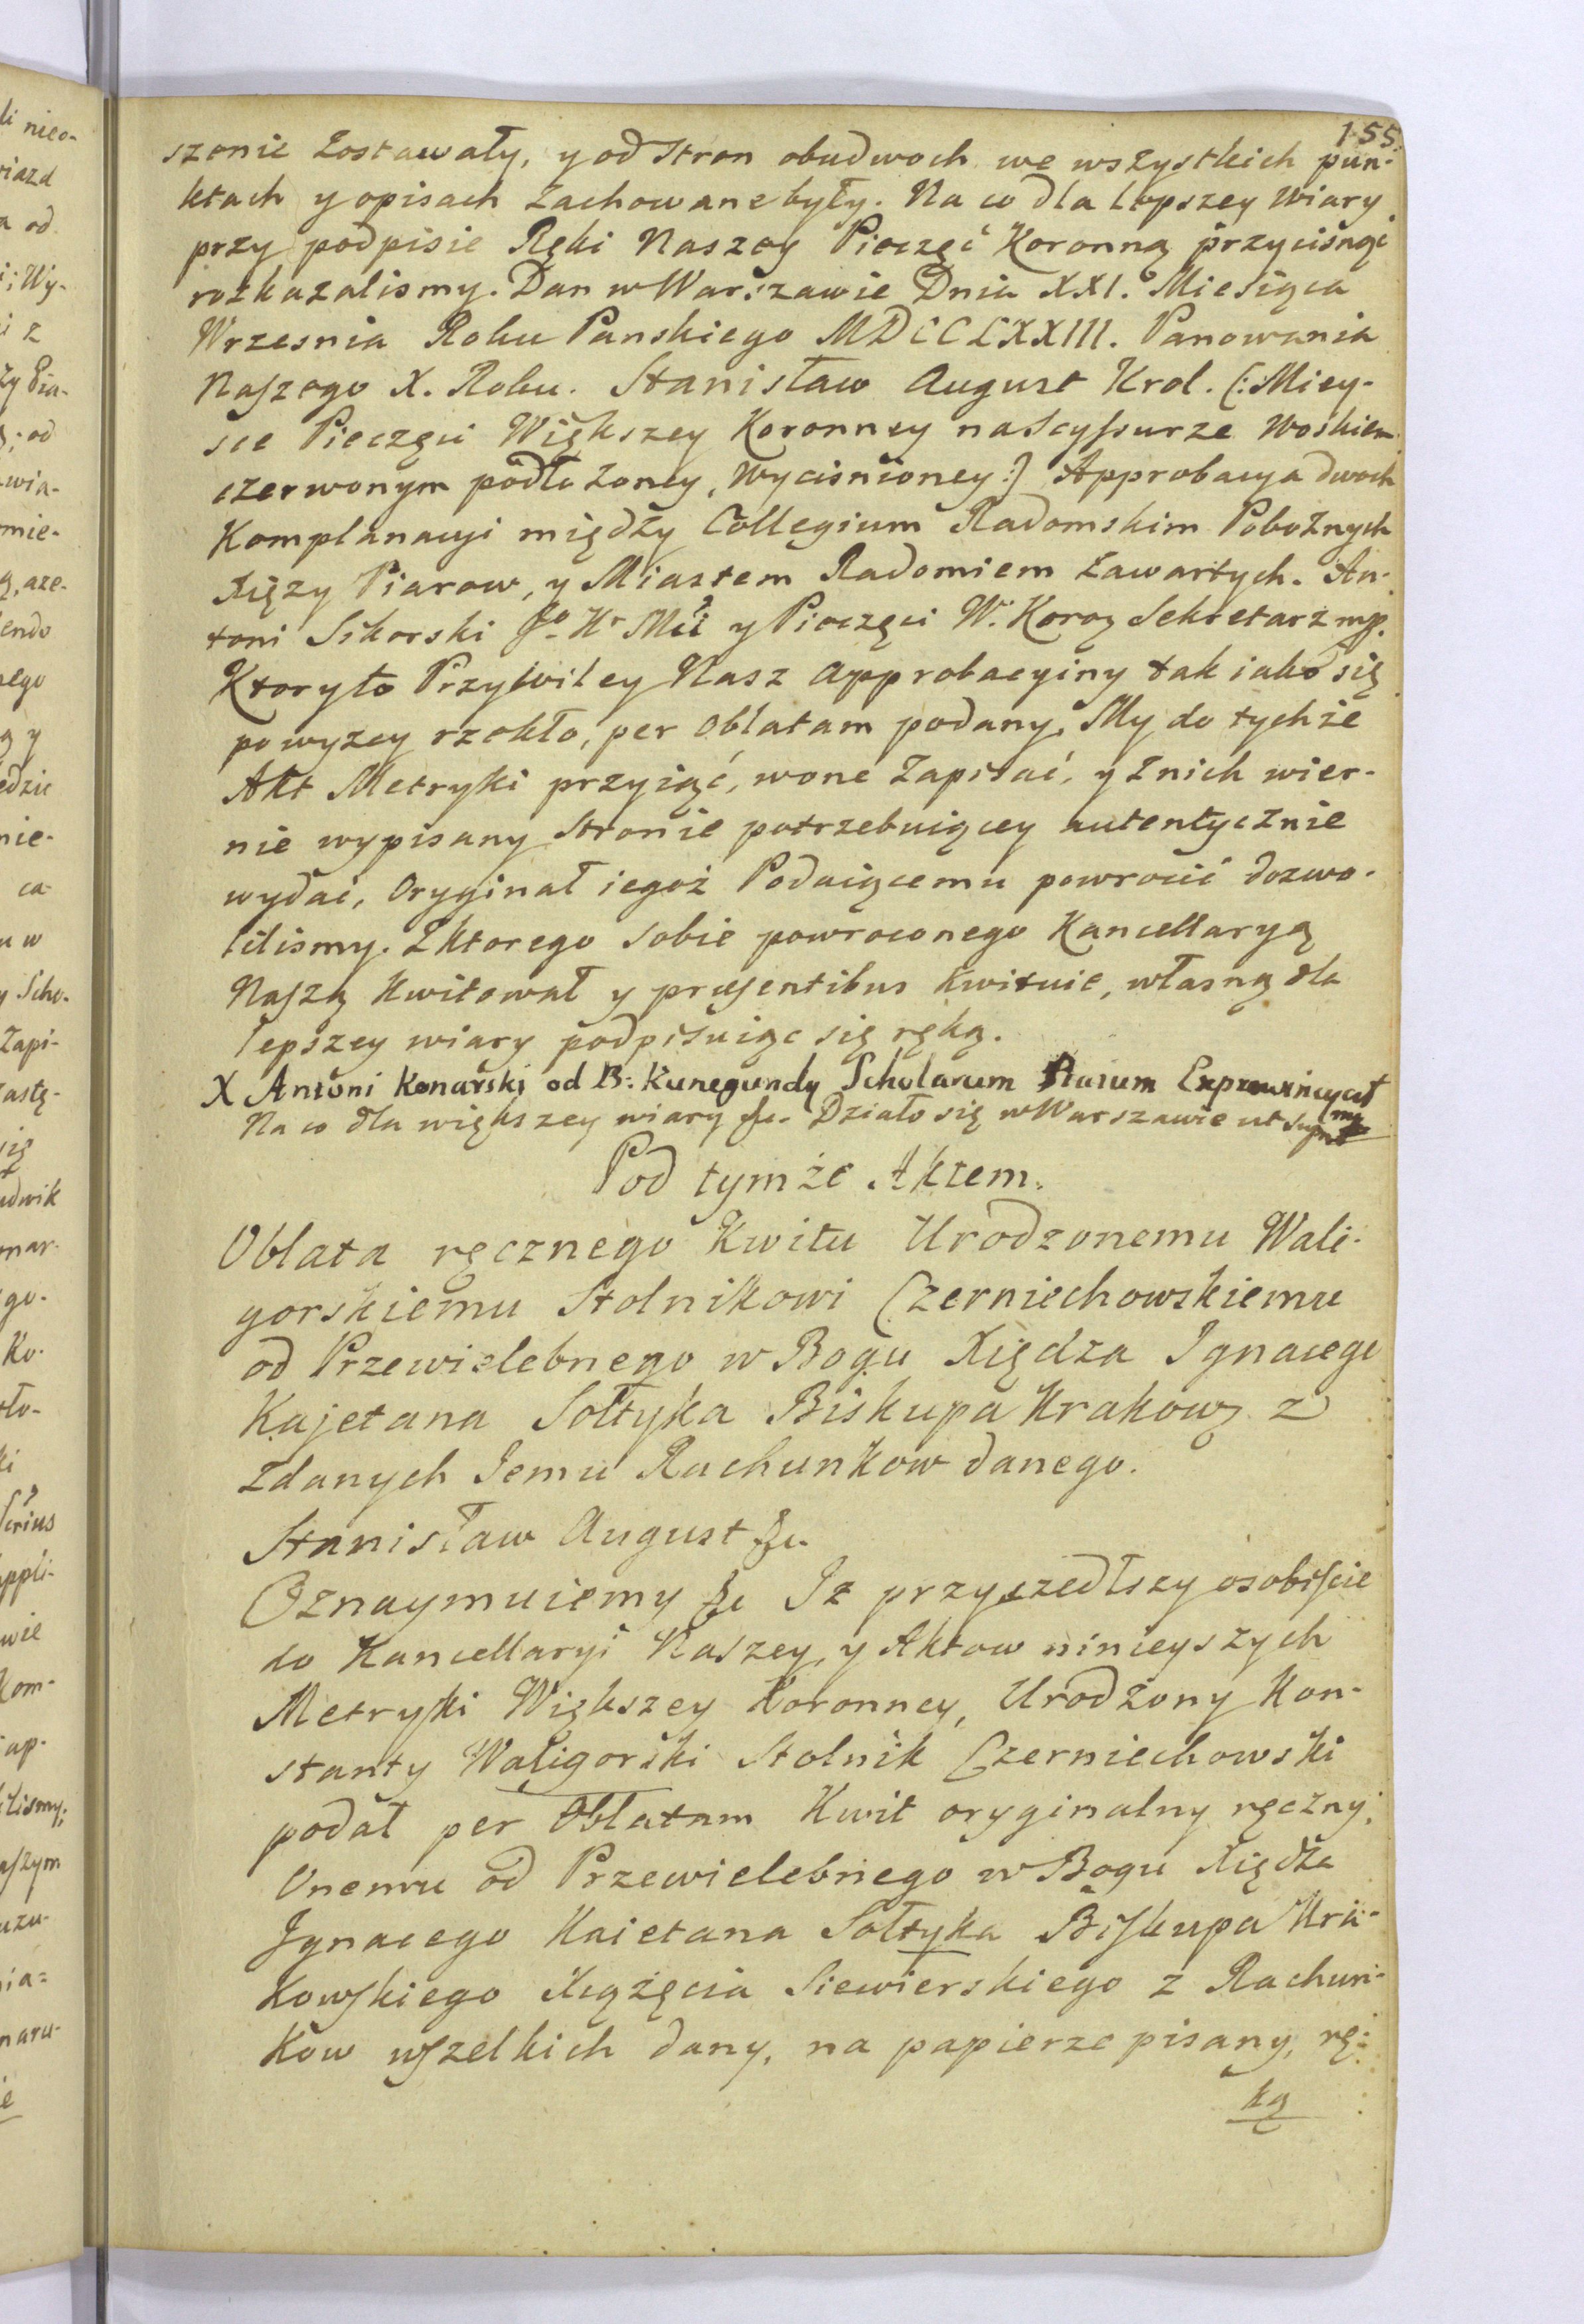 155.
szenie zostawały, y od stron obudwoch we wszystkich pun-
ktach y opisach zachowane były. Na co dla lepszey wiary
przy podpisie Ręki Naszey Pieczęć Koronną przycisnąć
rozkazalismy. Dan w Warszawie Dnia XXI. Miesiąca
Wrzesnia Roku Panskiego MDCCLXXIII. Panowania
Naszego X. Roku. Stanisław August Krol. (: Miey-
sce Pieczęci Większey Koronney na Scyssurze woskiem
czerwonym podłożoney, wycisnioney :) Approbacya dwoch
Komplanacyi między Collegium Radomskim Pobożnych
Xięży Piarow, y Miastem Radomiem zawartych. An-
toni Sikorski Jo Kr Mci y Pieczęci W. Koroz Sekretarz mp.
Ktoryto Przywiley Nasz approbacyiny tak iako się
powyzey rzekło, per oblatam podany, My do tychże
Akt Metryki przyiąć, w one zapisać, y z nich wier-
nie wypisany Stronie potrzebuiącey autentycznie
wydać, Oryginał iegoż Podaiącemu powrocić dozwo-
lilismy. Z ktorego sobie powroconego Kancellaryą
Naszą kwitował y præsentibus kwituie, własną dla
lepszey wiary podpisuiąc się ręką.
X Antoni Konarski od B: Kunegundy Scholarum Piarum Exprowincyał
mp
Na co dla większey wiary &c. Działo się w Warszawie ut supra
Pod tymże Aktem.
Oblata ręcznego Kwitu Urodzonemu Wali-
gorskiemu Stolnikowi Czerniechowskiemu
od Przewielebnego w Bogu Xiędza Ignacego
Kajetana Sołtyka Biskupa Krakowz z
zdanych Jemu Rachunkow danego.
Stanisław August &c.
Oznaymuiemy &c Iz przyszedłszy osobiscie
do Kancellaryi Naszey, y Aktow ninieyszych
Metryki Większey Koronney, Urodzony Kon-
stanty Waligorski Stolnik Czerniechowski
podał per Oblatam Kwit oryginalny ręczny,
Onemu od Przewielebnego w Bogu Xiędza
Ignacego Kaietana Sołtyka Biskupa Kra-
kowskiego Xiążęcia Siewierskiego z Rachun-
kow wszelkich dany, na papierze pisany, rę-
ką